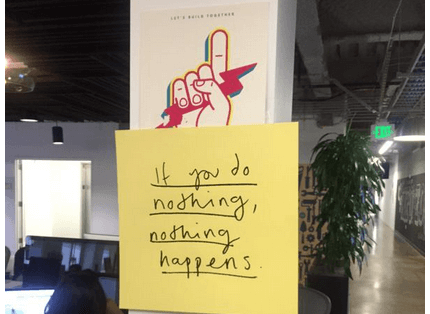 LET'S BUILD TOGETHER
If you do
nothing,
nothing
happens.
EXIT